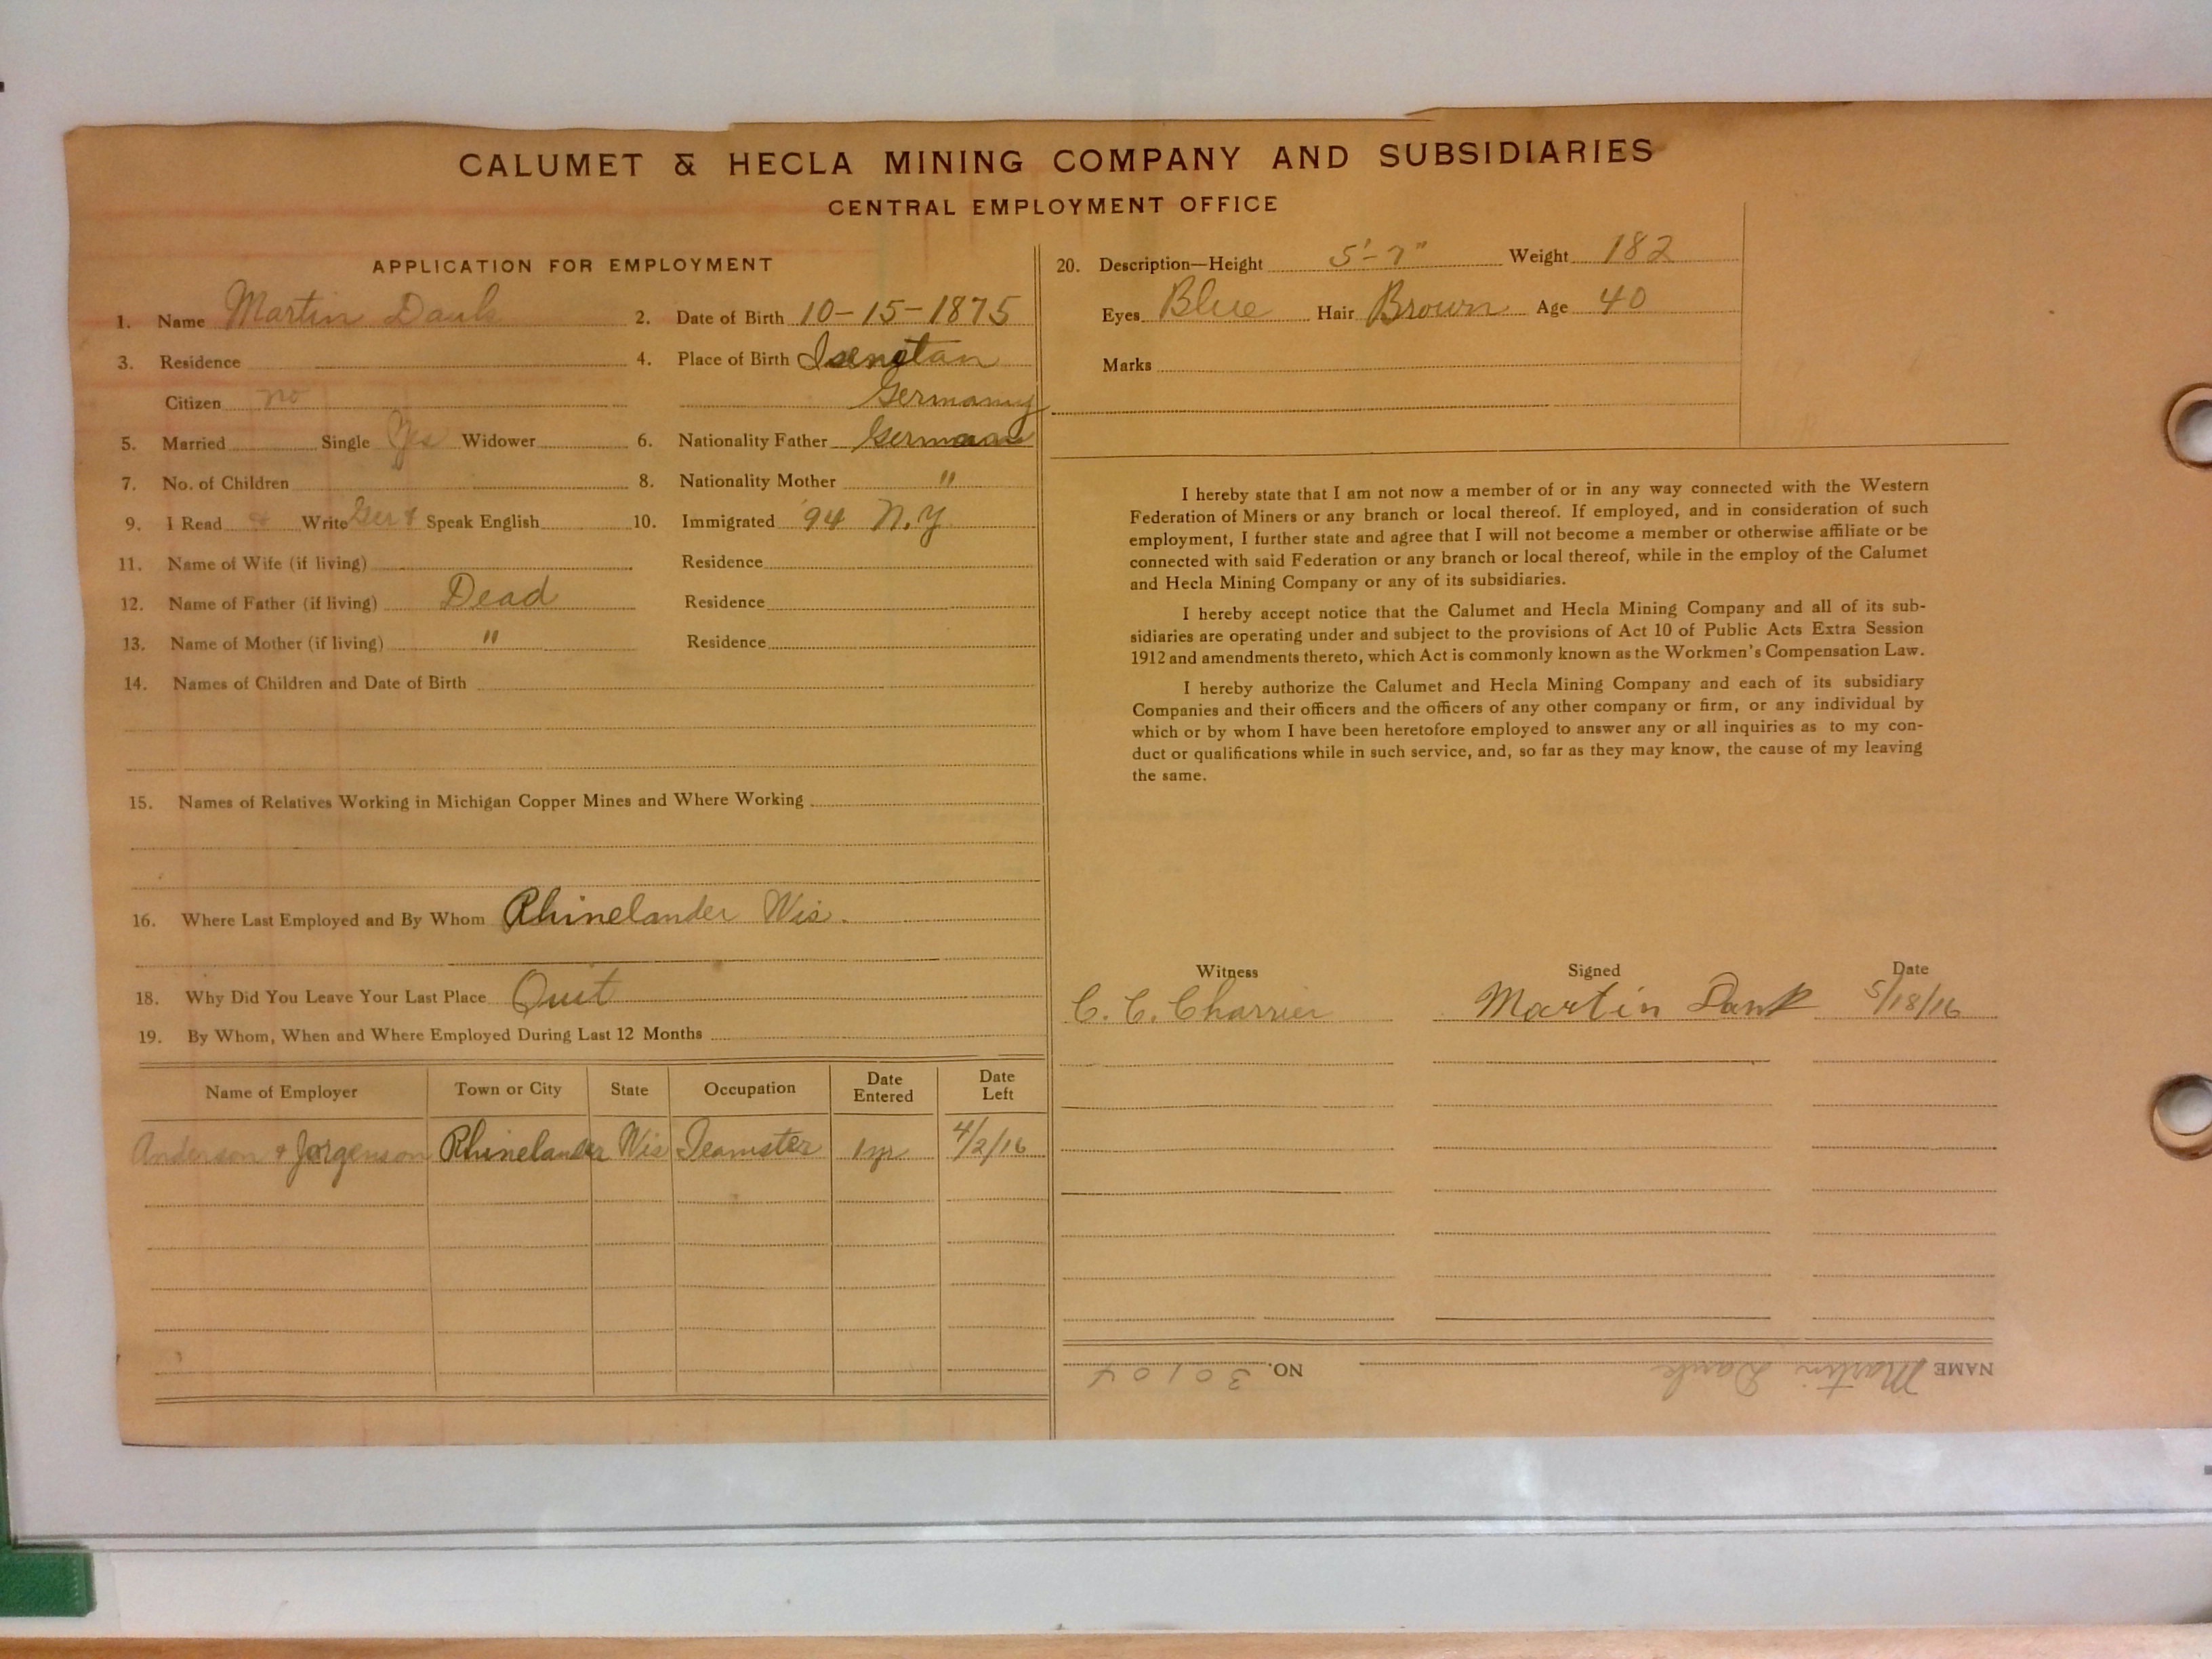 CALUMET & HECLA MINING COMPANY AND SUBSIDIARIES
CENTRAL EMPLOYMENT OFFICE
APPLICATION FOR EMPLOYMENT
1. Name Martin 2. Date of Birth 10-15-1875
3. Residence 4. Place of Birth
Citizen no Germany
5. Married Single Yes Widower 6. Nationality Father German
7. No. of Children 8. Nationality Mother "
9. I Read & Write Ger & Speak English 10. Immigrated '94 N.Y
11. Name of Wife (if living) Residence
12. Name of Father (if living) Dead Residence
13. Name of Mother (if living) " Residence
14. Names of Children and Date of Birth
15. Names of Relatives Working in Michigan Copper Mines and Where Working
16. Where Last Employed and By Whom Rhinelander Wis.
18. Why Did You Leave Your Last Place Quit
19. By Whom, When and Where Employed During Last 12 Months
Name of Employer Town or City State Occupation Date Entered Date Left
Anderson & Jorgenson Rhinelander Wis Teamster 1 yr 4/2/16
20. Description—Height 5'-7" Weight 182
Eyes Blue Hair Brown Age 40
Marks
I hereby state that I am not now a member of or in any way connected with the Western
Federation of Miners or any branch or local thereof. If employed, and in consideration of such
employment, I further state and agree that I will not become a member or otherwise affiliate or be
connected with said Federation or any branch or local thereof, while in the employ of the Calumet
and Hecla Mining Company or any of its subsidiaries.
I hereby accept notice that the Calumet and Hecla Mining Company and all of its sub-
sidiaries are operating under and subject to the provisions of Act 10 of Public Acts Extra Session
1912 and amendments thereto, which Act is commonly known as the Workmen's Compensation Law.
I hereby authorize the Calumet and Hecla Mining Company and each of its subsidiary
Companies and their officers and the officers of any other company or firm, or any individual by
which or by whom I have been heretofore employed to answer any or all inquiries as to my con-
duct or qualifications while in such service, and, so far as they may know, the cause of my leaving
the same.
Witness Signed Date
C. C. Charrier Martin Dank 5/18/16
NAME Martin Dank NO. 30104